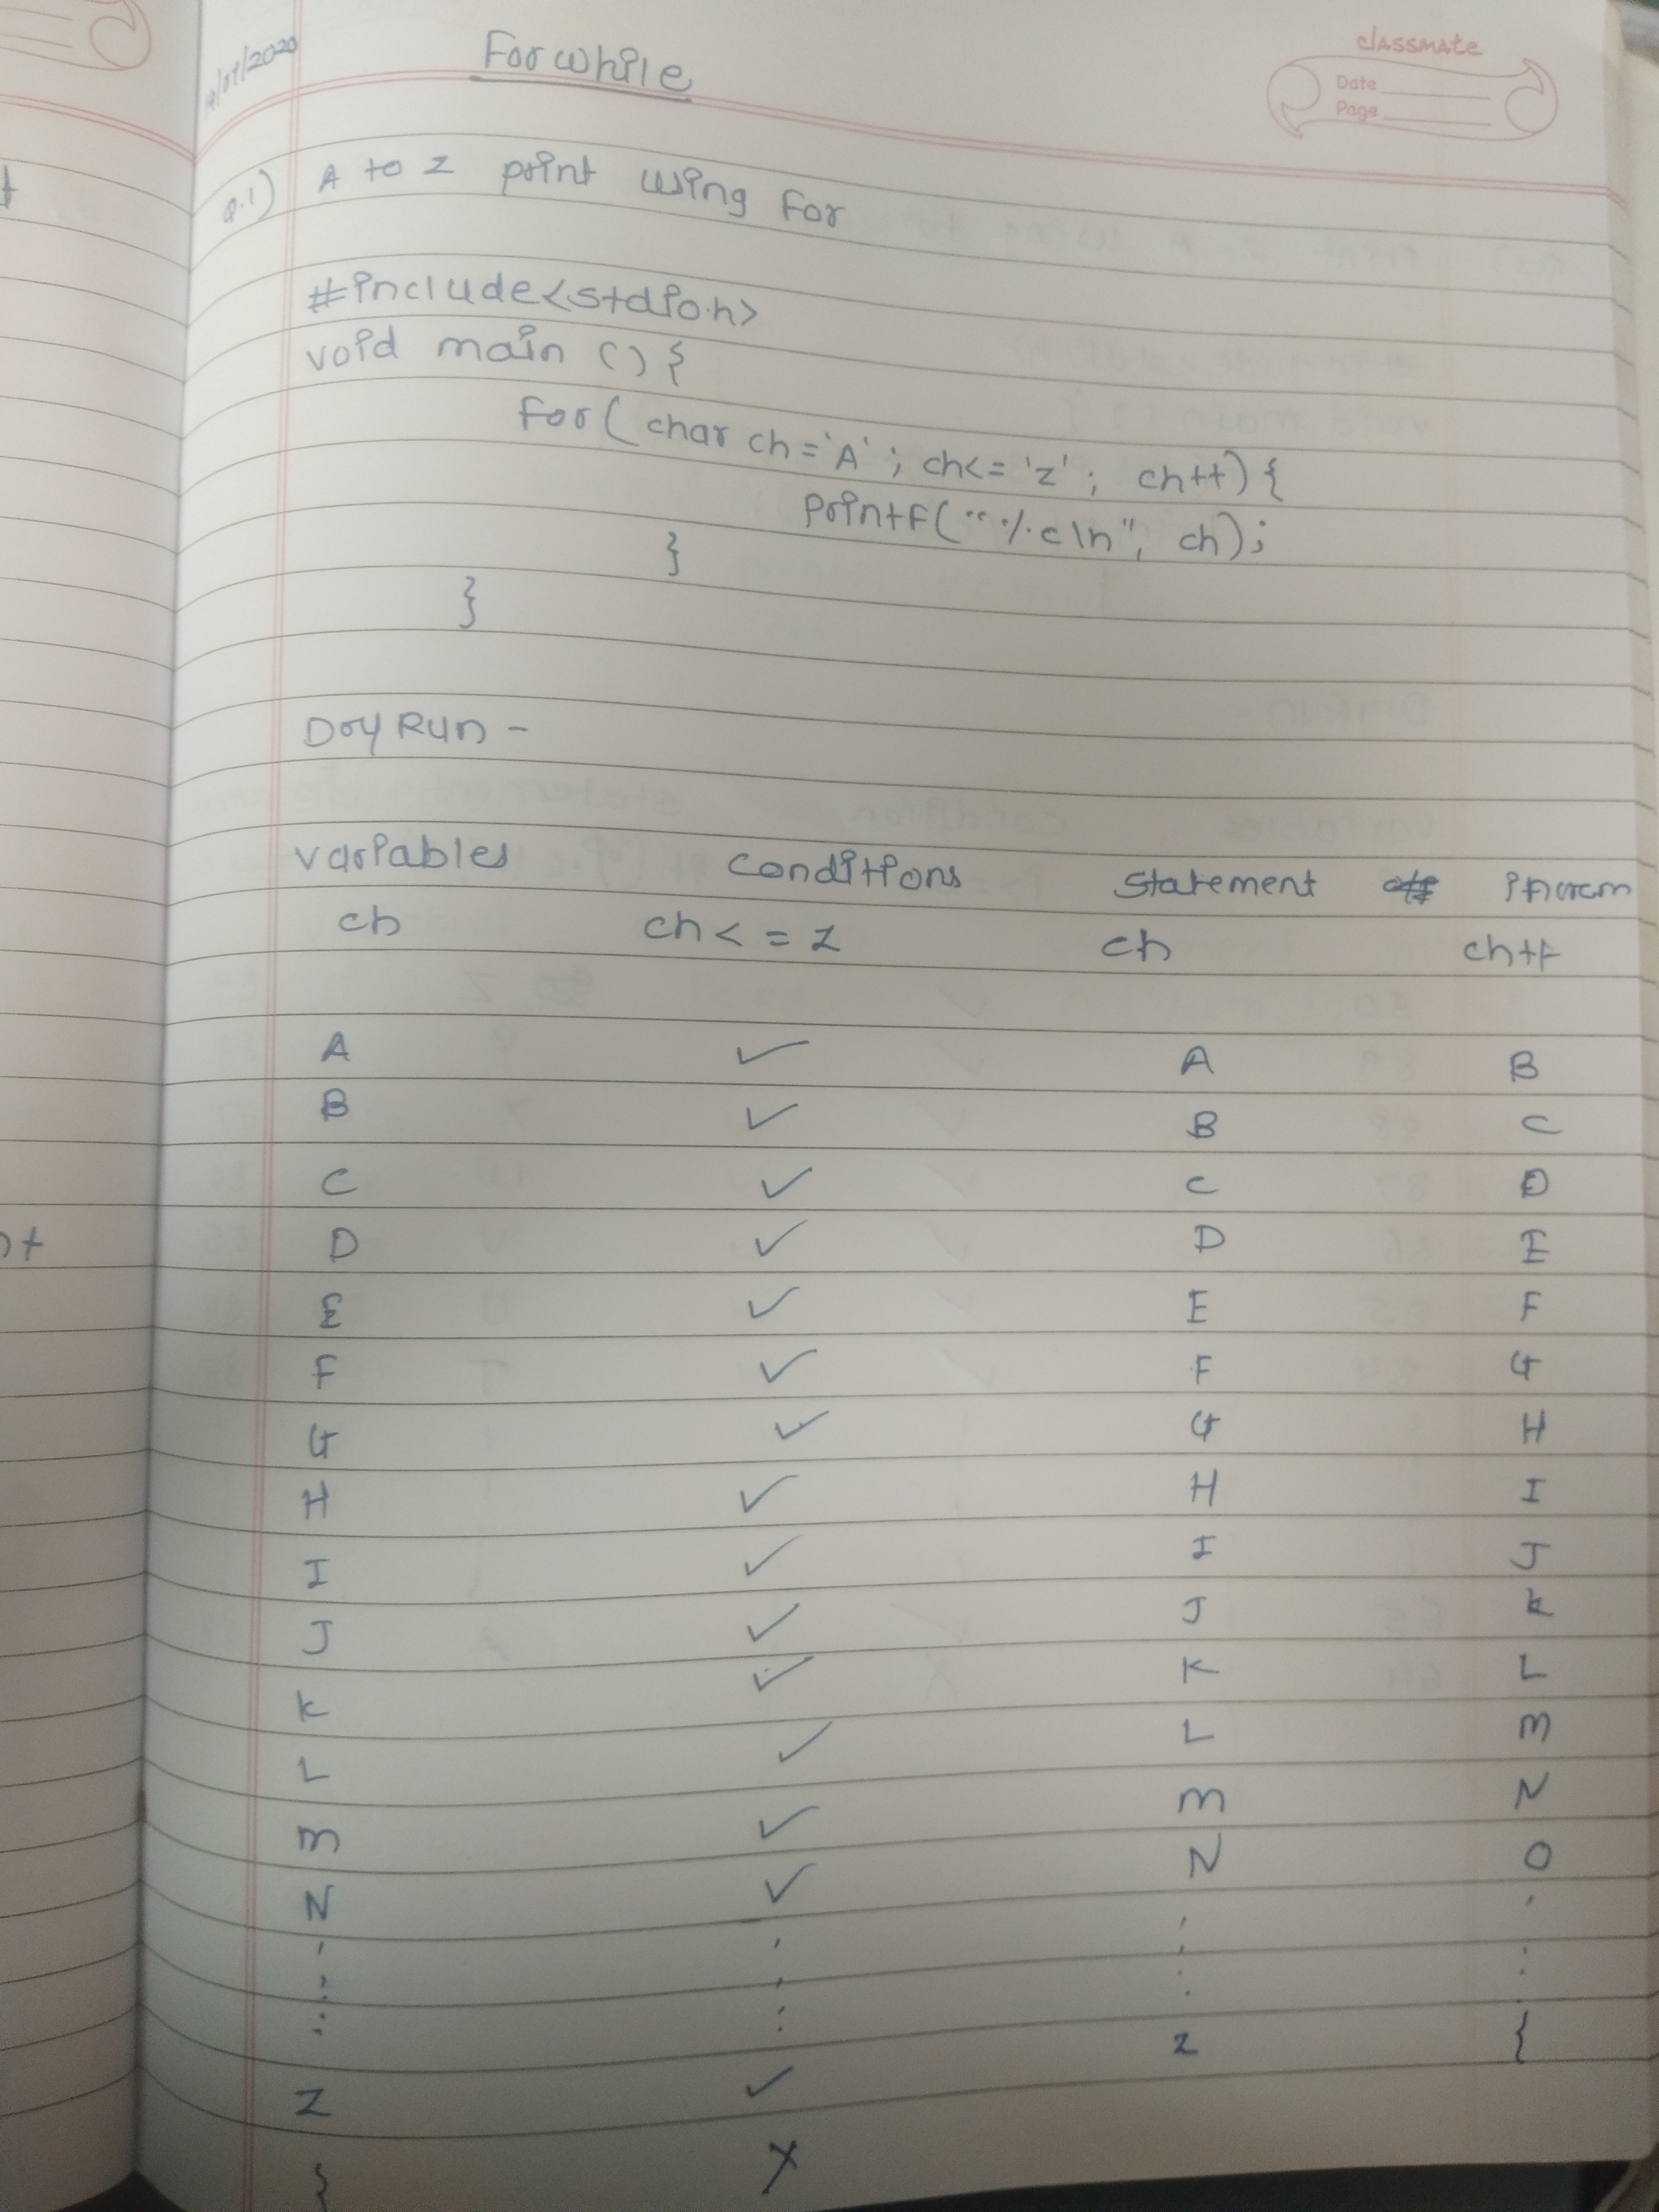 classmate
Date
Page
For while
Q.1) A to Z print using for
#include<stdio.h>
void main () {
for( char ch='A' ; ch<= 'z' ; ch++) {
printf("%c\n", ch);
}
}
Dry Run -
variables conditions statement
ch ch< = Z ch ch++
A ✓ A B
B ✓ B C
C ✓ C D
D ✓ D E
E ✓ E F
F ✓ F G
G ✓ G H
H ✓ H I
I ✓ I J
J ✓ J K
K ✓ K L
L ✓ L M
M ✓ M N
N ✓ N O
Z ✓ Z {
{ X